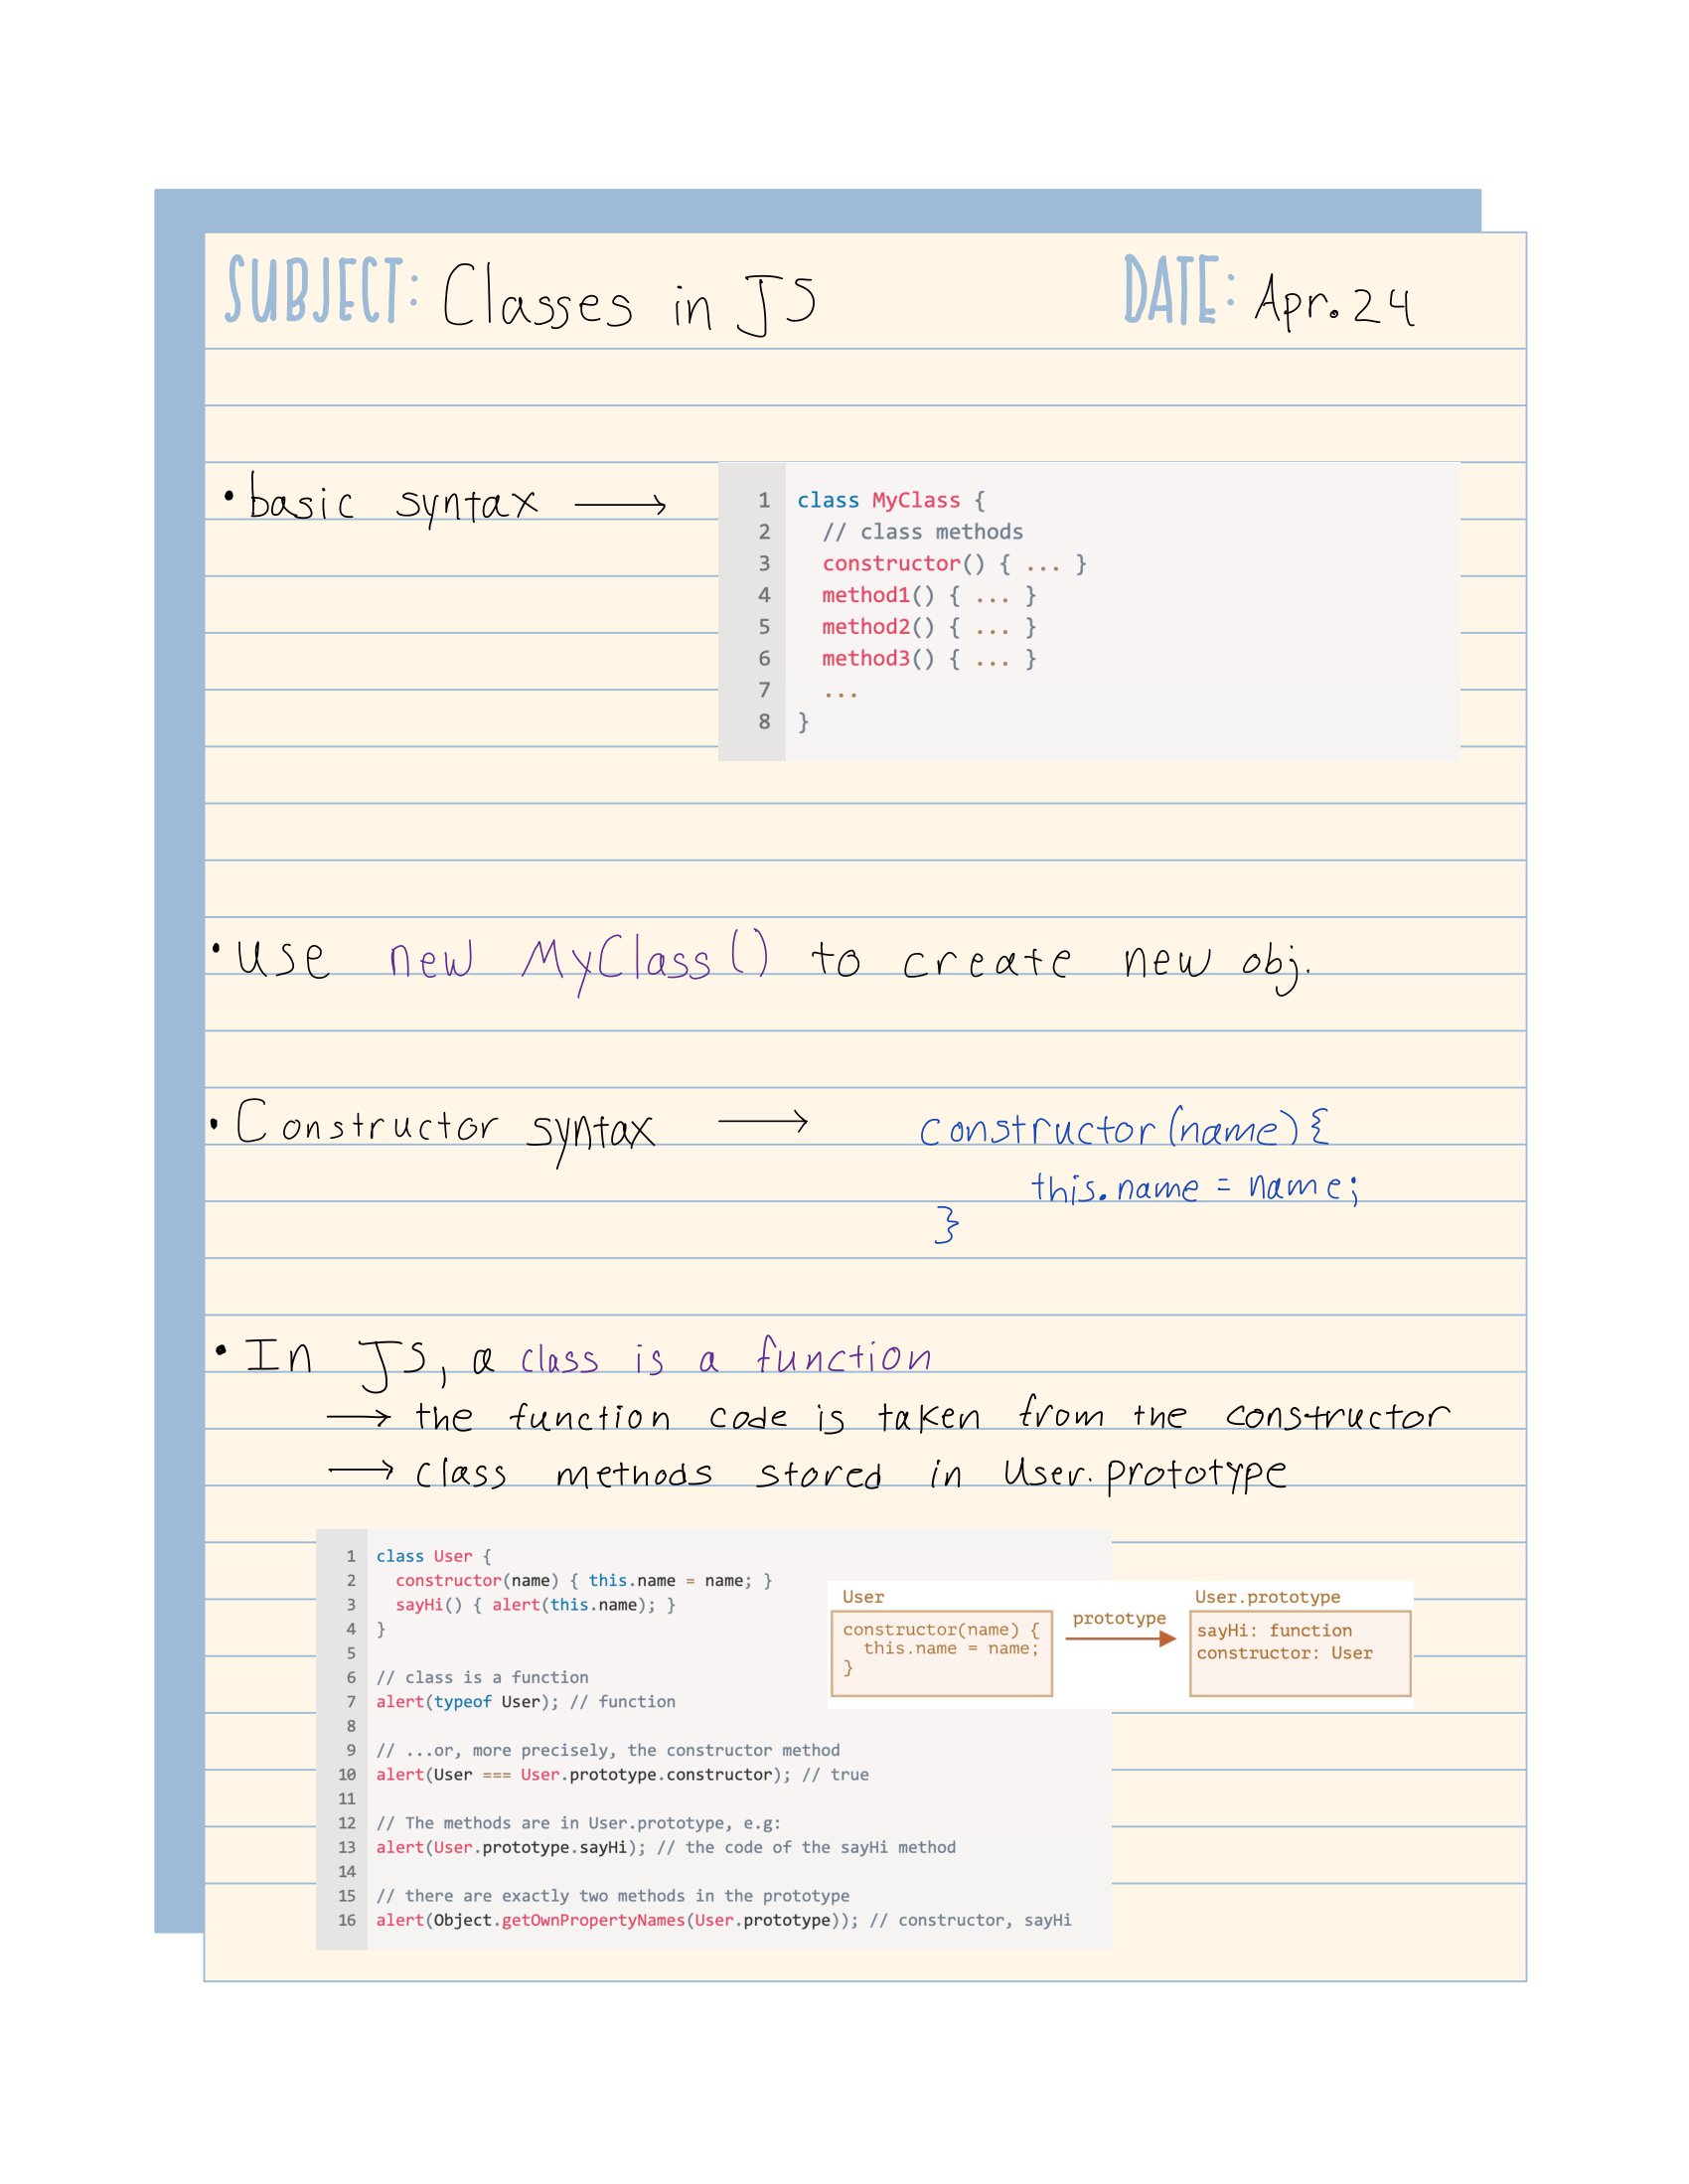 SUBJECT: Classes in JS
DATE: Apr. 24
• basic syntax →
1 class MyClass {
2   // class methods
3   constructor() { ... }
4   method1() { ... }
5   method2() { ... }
6   method3() { ... }
7   ...
8 }
• Use new MyClass() to create new obj.
• Constructor syntax → constructor(name){
this.name = name;
}
• In JS, a class is a function
→ the function code is taken from the constructor
→ class methods stored in User.prototype
1 class User {
2   constructor(name) { this.name = name; }
3   sayHi() { alert(this.name); }
4 }
5
6 // class is a function
7 alert(typeof User); // function
8
9 // ...or, more precisely, the constructor method
10 alert(User === User.prototype.constructor); // true
11
12 // The methods are in User.prototype, e.g:
13 alert(User.prototype.sayHi); // the code of the sayHi method
14
15 // there are exactly two methods in the prototype
16 alert(Object.getOwnPropertyNames(User.prototype)); // constructor, sayHi
User
constructor(name) {
  this.name = name;
}
prototype
User.prototype
sayHi: function
constructor: User